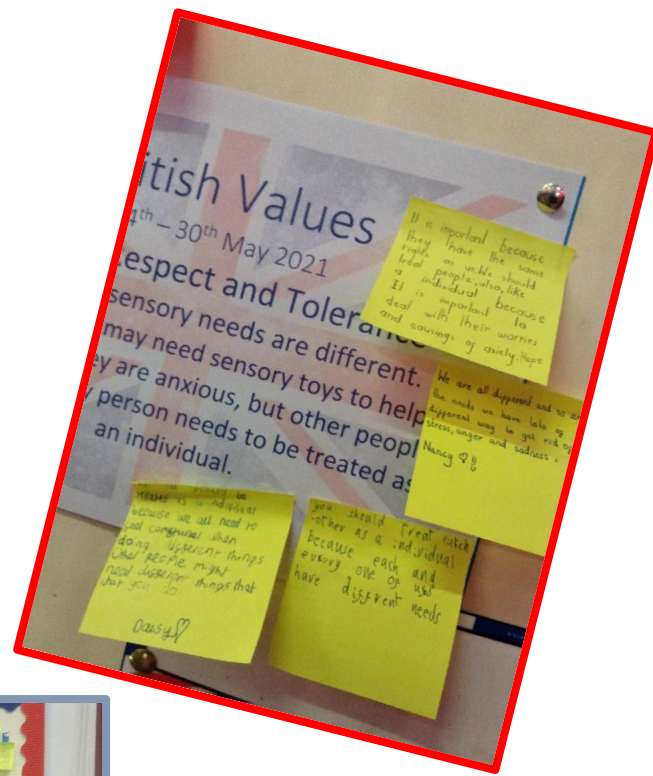 itish Values
4th – 30th May 2021
espect and Tolerance
sensory needs are different.
may need sensory toys to help
ey are anxious, but other peopl
y person needs to be treated as
an individual.
It is important because
they have the same
rights as us. We should
treat people, also, like
a individual because
It is important to
deal with their worries
and causings of axiety. Hope
We are all different and so ar
the needs we have lots of
different way to get rid of
stress, anger and sadness.
Nancy
treated as a individual
because we all need to
feel when
doing different things
Other people might
need different things that
that you do.
Daisy
you should treat eatch
other as a individual
because each and
every one of us
have different needs